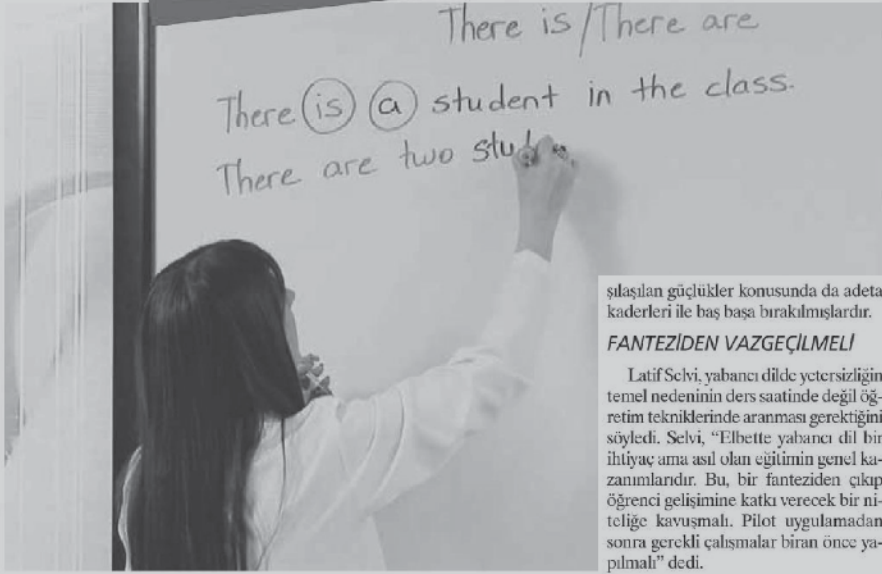 There is/There are
There is a student in the class.
There are two stud
şılaşılan güçlükler konusunda da adeta
kaderleri ile baş başa bırakılmışlardır.
FANTEZİDEN VAZGEÇİLMELİ
Latif Selvi, yabancı dilde yetersizliğin
temel nedeninin ders saatinde değil öğ-
retim tekniklerinde aranması gerektiğini
söyledi. Selvi, “Elbette yabancı dil bir
ihtiyaç ama asıl olan eğitimin genel ka-
zanımlarıdır. Bu, bir fanteziden çıkıp
öğrenci gelişimine katkı verecek bir ni-
teliğe kavuşmalı. Pilot uygulamadan
sonra gerekli çalışmalar biran önce ya-
pılmalı” dedi.